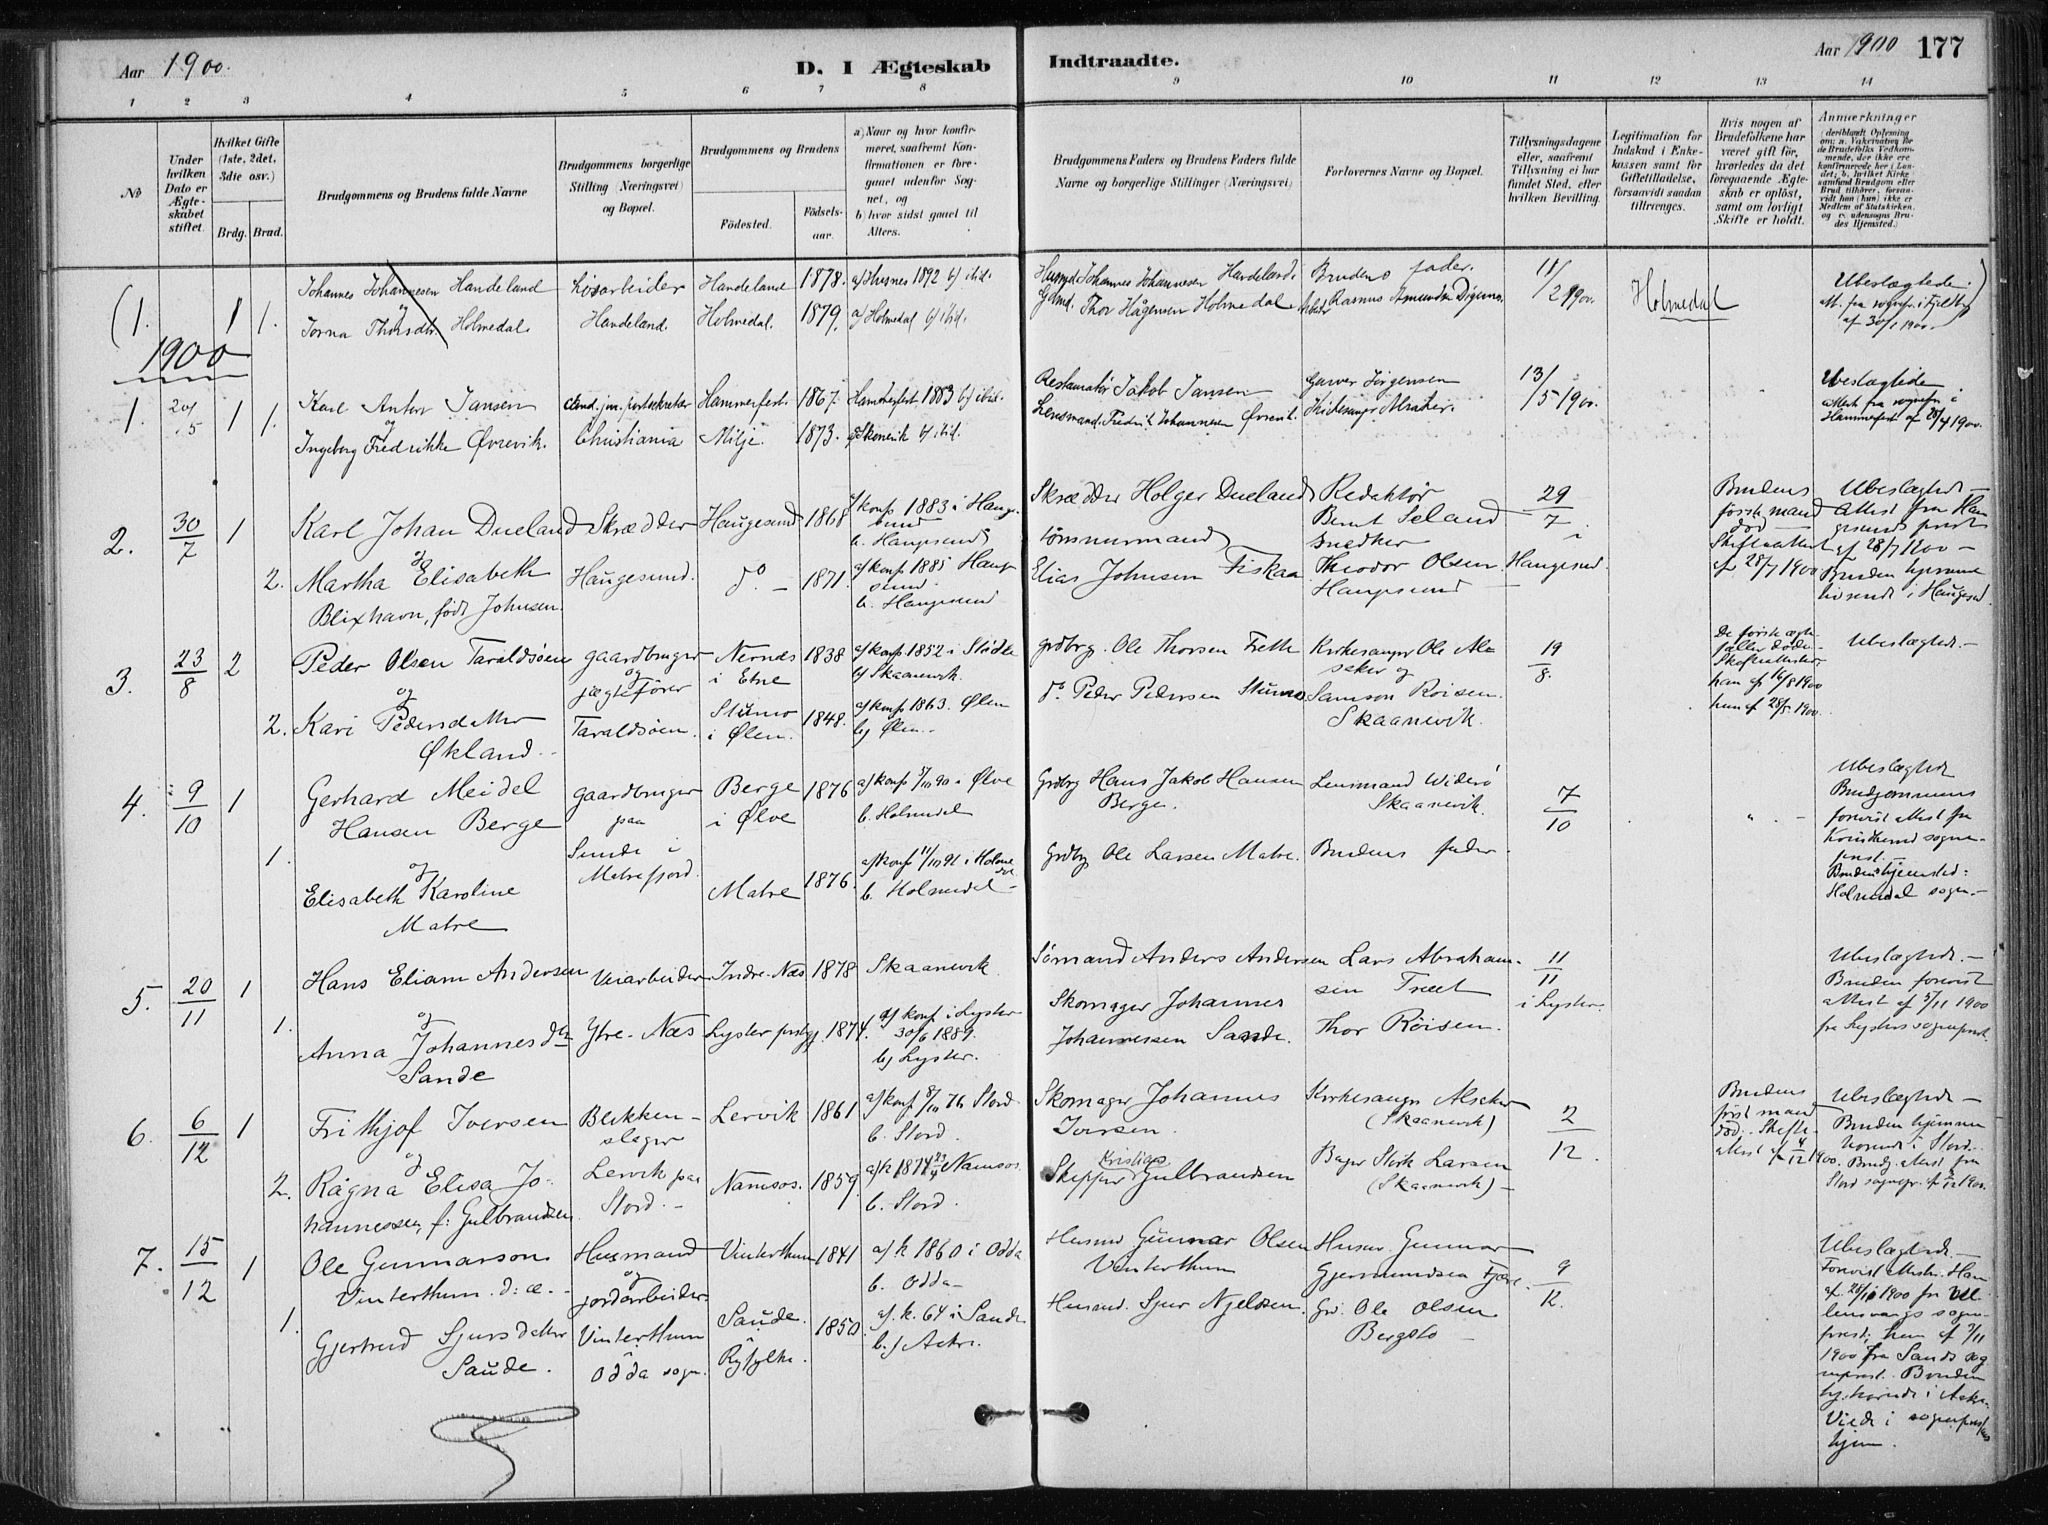 Aar 1900.
D. I Ægteskab
Indtraadte.
Aar 1900
177
1 2 3 4 5 6 7 8 9 10 11 12 13 14
No
Under hvilken Dato er Ægteskabet stiftet.
Hvilket Gifte (1ste, 2det, 3die osv.)
Brdg. Brud.
Brudgommens og Brudens fulde Navne
Brudgommens borgerlige Stilling (Næringsvei) og Bopæl.
Brudgommens og Brudens
Födested.
Födselsaar.
a) Naar og hvor konfirmeret, saafremt Konfirmationen er foregaaet udenfor Sognet, og
b) hvor sidst gaaet til Alters.
Brudgommens Faders og Brudens Faders fulde Navne og borgerlige Stillinger (Næringsvei)
Forlovernes Navne og Bopæl.
Tillysningsdagene eller, saafremt Tillysning ei har fundet Sted, efter hvilken Bevilling.
Legitimation for Indskud i Enkekassen samt for Giftetilladelse, forsaavidt saadan tiltrænges.
Hvis nogen af Brudefolkene har været gift før, hvorledes da det foregaaende Ægteskab er oplöst, samt om lovligt Skifte er holdt.
Anmærkninger
(1. 1 1.
Johannes Johannesen Handeland
og
Torna Thorsdtr Holmedal
Løsarbeider
Handeland.
Handeland 1878. a) Husnes 1892 b) ibid.
Holmedal. 1879. a) Holmedal b) ibid.
Husmd. Johannes Johannesen Handeland.
Gbmd. Thor Hågensen Holmedal
Brudens fader.
Rasmus Amundsen Digernes.
11/2 1900.
Holmedal
Ubeslægtede.
Att. fra sognepr. i Fjeldb.
af 30/1 1900.
1900
1. 20/5 1 1.
Karl Anton Jansen
og
Ingeborg Fredrikke Øvrevik.
Cand. jur. postsekretær
Christiania
Hammerfest. 1867. Hammerfest. 1883 b) ibid.
Milje. 1873. a) Skonevik b) ibid.
Restauratør Jakob Jansen
Lensmand. Fredrik Johannesen Øvrevik.
Garver Jørgensen
Kirkesanger Alsaker.
13/5 1900.
Ubeslægtede
Attest fra sognepr. i
Hammerfest af 28/4 1900.
2. 30/7 1
2.
Karl Johan Dueland
og
Martha Elisabeth
Blixhavn, født Johnsen.
Skrædder
Haugesund.
Haugesund 1868
do - 1871.
a) konf 1883 i Haugesund
b. Haugesund
a) konf 1885 Haugesund.
b. Haugesund
Skrædder Holger Dueland
Tømmermand
Elias Johnsen Fiskaa
Redaktør
Bernt Seland
Snedker
Theodor Olsen
Haugesund
29/7
i
Haugesund
Brudens
første mand
død -
Skifteattest
af 28/7 1900
Ubeslægtede -
Attest fra Haugesunds prest
af 28/7 1900 -
Bruden hjemmehørende i Haugesund.
3. 23/8 2
2.
Peder Olsen Taraldsøen
og
Kari Pedersdatter
Økland.
gaardbruger
og
jægtefører
Taraldsøen.
Nernes 1838
i Etne
Stumo 1848.
i Ølen.
a) konf 1852 i Stødle
b) Skaanevik.
a) konf 1863. Ølen
b) Ølen.
grdbrg. Ole Thorsen Frette
do Peder Pedersen Stumo
Kirkesanger Ole Alsaker og
Samson Røisen.
Skaanevik.
19/8.
De første ægtefæller døde.
Skifteattester
han af 16/8 1900
hun af 28/5 1900.
Ubeslægtede. -
4. 9/10 1
1.
Gerhard Meidel
Hansen Berge
og
Elisabeth Karoline
Matre
gaardbruger
paa
Sunde i
Matrefjord.
Berge 1876
i Ølve
Matre 1876.
a) konf 5/10 90 i Ølve
b. Holmedal
a) konf 11/10 91 i Holmedal
b. Holmedal -
Grdbrg Hans Jakob Hansen
Berge.
Grdbrg Ole Larsen Matre.
Lensmand Widerø
Skaanevik.
Brudens fader.
7/10
Ubeslægtede
Brudgommens
forevist attest fra
Kvindherred sogneprest. -
Brudens hjemsted:
Holmedal sogn. -
5. 20/11 1
1.
Hans Eliam Andersen
og
Anna Johannesdtr
Sande
Veiarbeider
Ytre-Næs
Indre-Næs 1878
Lyster prstgj. 1874.
Skaanevik
a) konf i Lyster
30/6 1889.
b) Lyster.
Sømand Anders Andersen
Skomager Johannes
Johannessen Sande.
Lars Abrahamsen Træet
Thor Røisen.
11/11
i Lyster.
Ubeslægtede. -
Bruden forevist
attest af 5/11 1900
fra Lysters sogneprest.
6. 6/12 1
2.
Frithjof Iversen
og
Ragna Elisa Johannessen, f: Gulbrandsen
Blikkenslager
Lervik paa
Stord. -
Lervik 1861
Namsos. 1859.
a) konf 8/10 76 Stord
b. Stord.
a) k 1874 Namsos.
b. Stord.
Skomager Johannes
Iversen.
Skipper Kristian Gulbrandsen
Kirkesanger Alsaker
(Skaanevik)
Bager Storik Larsen
(Skaanevik) -
2/12.
Brudens
først mand
død. Skifteattest af 4/12 1900.
Ubeslægtede -
Bruden hjemmehørende i Stord.
Brudg. attest fra
Stord sognepr. af 5/12 1900.
7. 15/12 1
1.
Ole Gunnarson
Vinterthun. d: æ. -
Gjertrud Sjursdatter
Saude.
Husmand
og
jordarbeider
Vinterthun
Odda sogn.
Vinterthun 1841
Saude. 1850.
Ryfylke.
a) k 1860 i Odda
b. Odda -
a). k. 64 i Sande
b.) Aakre.
Husmd Gunnar Olsen
Vinterthun
Husmd. Sjur Njelssen.
Husm. Gunnar
Gjermundsen Fjære.
Grd. Ole Olsen
Bergsto -
9/12.
Ubeslægtede. -
Forevist attester. Han
af 28/10 1900 fra Ullensvangs sogneprest, hun af 3/11
1900 fra Sands sogneprest. Bruden
hj. hørende i Aakre.
Viede i sogneprestens
hjem.